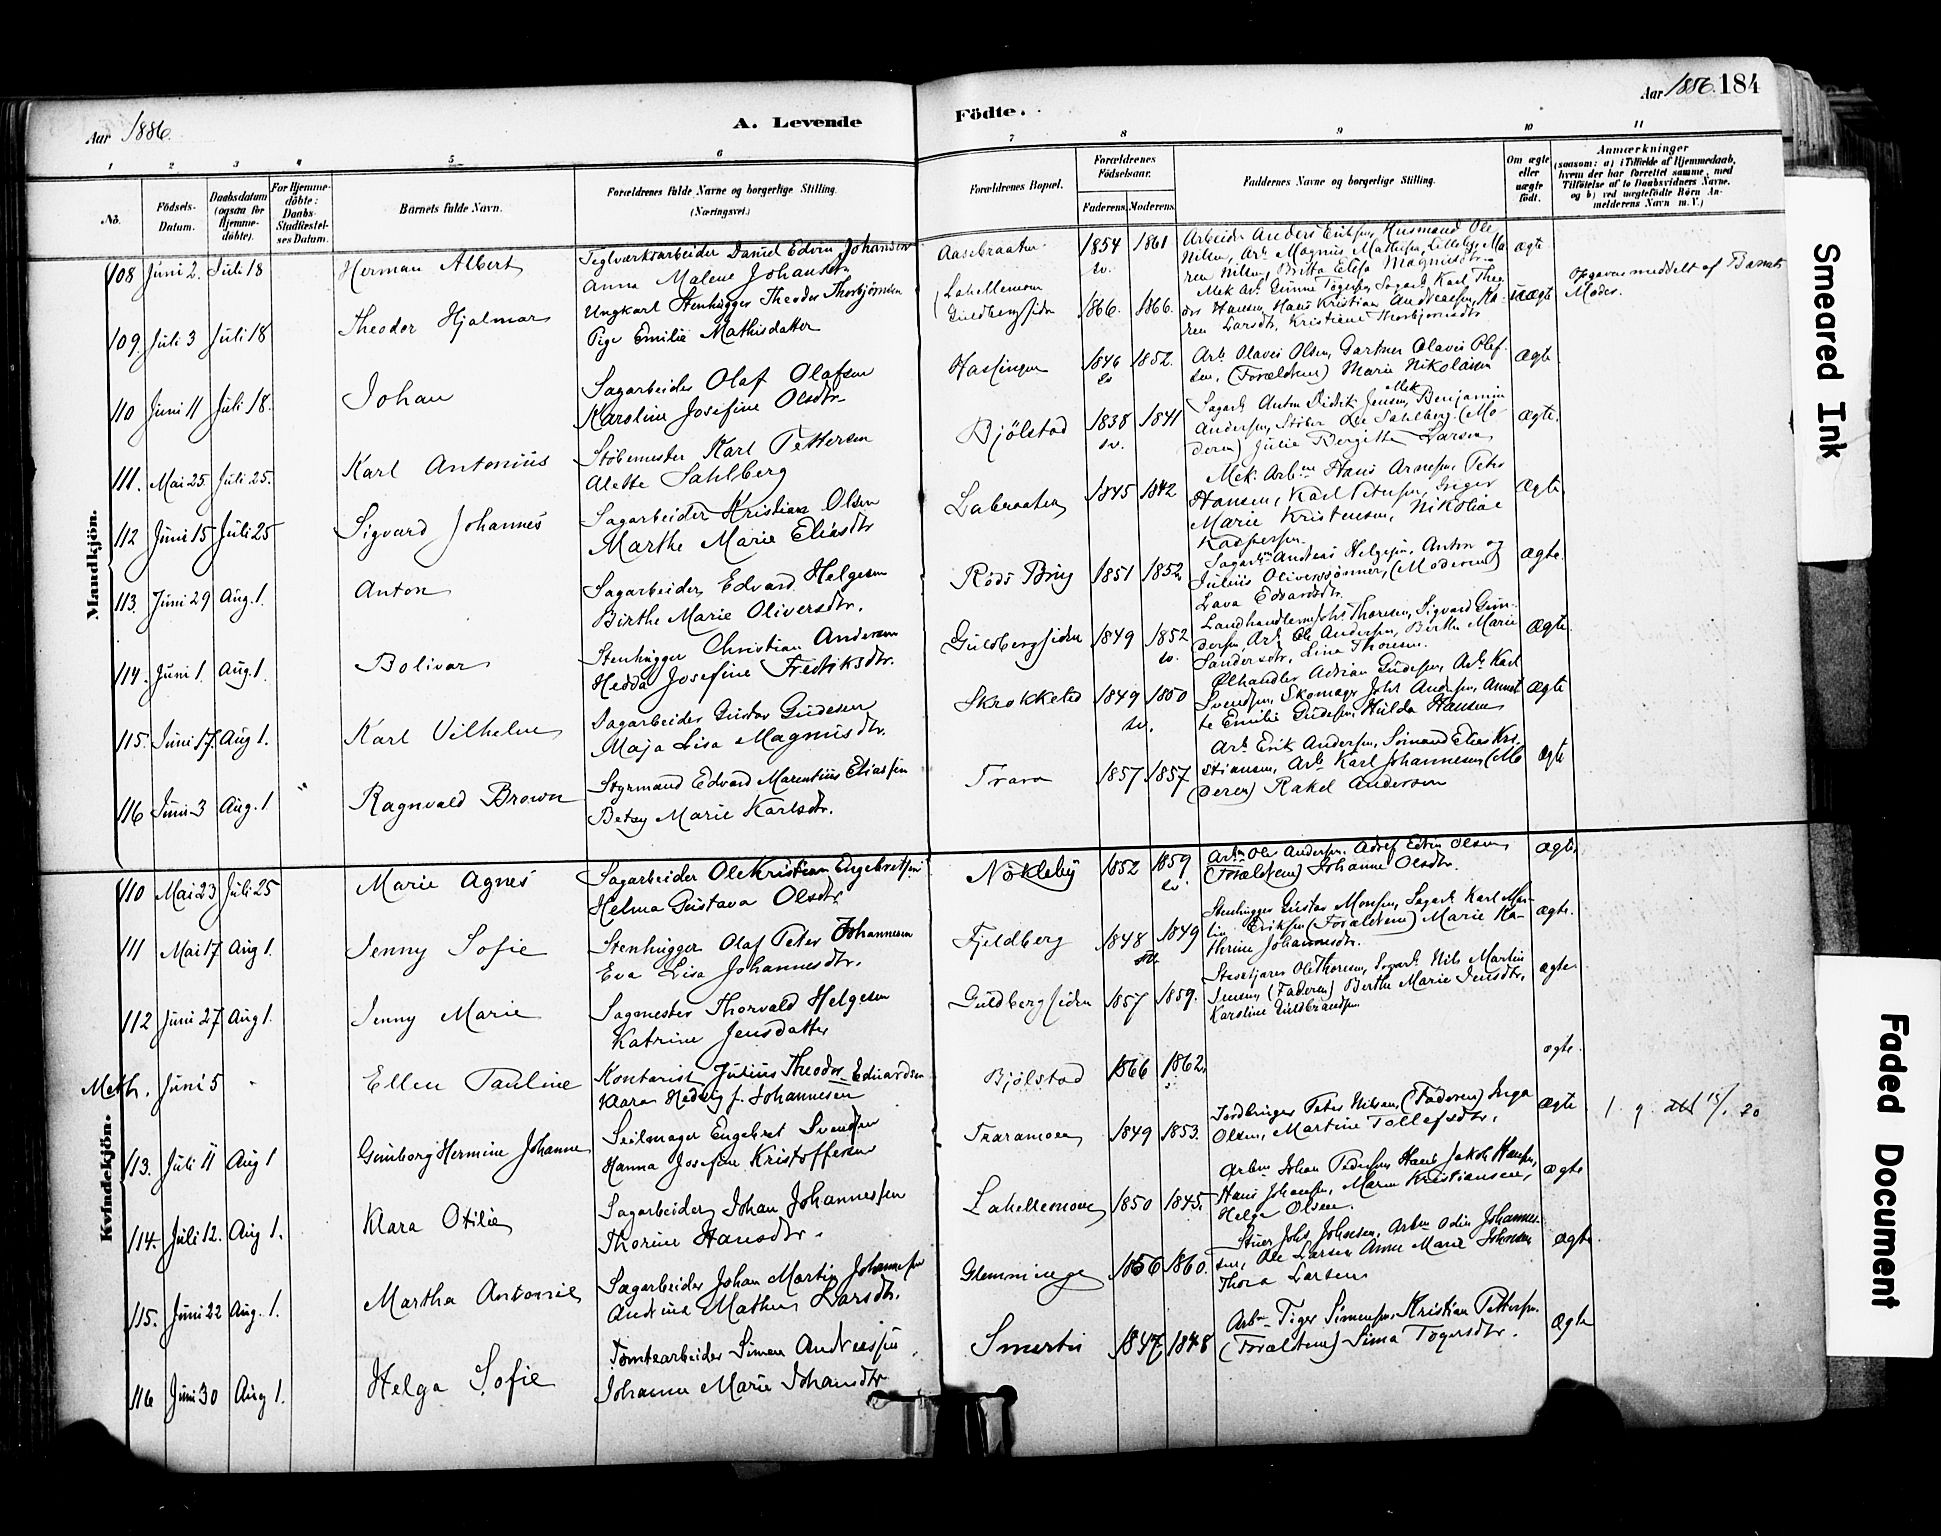 Aar 1886.
A. Levende
Fødte.
Aar 1886. 184
1 2 3 4 5 6 7 8 9 10 11
No.
Fødsels-Datum.
Daabsdatum (ogsaa for Hjemme-døbte).
For Hjemme-døbte: Daabs-Stadfæstel-ses Datum.
Barnets fulde Navn.
Forældrenes fulde Navne og borgerlige Stilling. (Næringsvei.)
Forældrenes Bopæl.
Forældrenes Fødselsaar.
Faderens. Moderens.
Faddernes Navne og borgerlige Stilling.
Om ægte eller uægte født.
Anmærkninger
(saasom: a) i Tilfælde af Hjemmedaab,
hvem der har forrettet samme, med
Tilføielse af to Daabsvidners Navne,
og b) ved uægtefødte Børn An-
melderens Navn m. V.)
Mandkjøn.
108 Juni 2. Juli 18 Herman Albert
Teglværksarbeider Daniel Edvin Johansen
Anna Malene Johansdtr
Aasebraaten 1854 1861 ægte
109. Juli 3 Juli 18 Theodor Hjalmar
Ungkarl Stenhugger Theodor Thorbjørnsen
Pige Emilie Mathisdatter
Lahellemoen
Guldbergsiden 1866. 1866. uægte
Opgaven meddelt af Barnets
Moder.
110 Juni 11 Juli 18. Johan
Sagarbeider Olaf Olafsen
Karoline Josefine Olsdtr
Haslingen 1846 1852.
Arb. Olaves Olsen, Gartner Olaves Olef-
sen, (Forældrene) Marie Nikolaisen ægte
111. Mai 25 Juli 25. Karl Antonius
Støbemester Karl Pettersen
Alette Sahlberg
Bjølstad 1838 1841
Sagarb. Anton Didrik Jensen, Mek. Benjamin
Andersen, Støber Ole Sahlberg (Mo-
deren) Julie Bergitte Larsen ægte.
112 Juni 15 Juli 25 Sigvard Johannes
Sagarbeider Kristian Olsen
Marthe Marie Eliasdtr
Labraaten 1845 1842
Mek. Arb. Hans Arnesen, Peter
Hansen, Karl Petersen, Inger
Marie Kristensen, Nikoliae
Kaspersen ægte.
113. Juni 29 Aug. 1. Anton
Sagarbeider Edvard Helgesen
Birthe Marie Oliversdtr.
Røds Brug 1851 1852
Sagarb. Andreas Helgesen, Anton og
Julius Oliverssønner, (Moderen)
Lava Edvardsdtr. ægte.
114. Juni 1. Aug. 1. Bolivar
Stenhugger Christian Andersen
Hedda Josefine Fredriksdtr.
Guldbergsiden 1849 1852
Landhandler Johs. Thoresen, Sigvard Gun-
dersen, Arb. Ole Andersen, Berthe Marie
Sandersdtr, Lina Thoresen. ægte.
115. Juni 17. Aug 1. Karl Vilhelm
Sagarbeider Gustav Gudesen
Maja Lisa Magnusdtr.
Skrokketa 1849 1850
Ølhandler Adrian Gudesen, Arb. Karl
Svendsen, Skomager Johs Andersen, Annet-
te Emilie Gudesen, Hulda Hansen ægte
116 Juni 3 Aug. 1 " Ragnvald Brown
Styrmand Edvard Marentius Eliassen
Betsy Marie Karlsdtr.
Trara 1857 1857
Arb. Erik Andersen, Sømand Elias Kri-
stiansen, Arb. Karl Johannesen, (Mo-
deren) Rakel Andersen ægte
Kvindekjøn.
110 Mai 23 Juli 25 Marie Agnes
Sagarbeider Ole Kristian Engebretsen
Helma Gustava Olsdtr.
Nøkleby 1852 1859
Arb. Ole Andersen, Adolf Edvin Olsen,
(Forældrene) Johanne Olsdtr. ægte.
111 Mai 17 Aug 1. Jenny Sofie
Stenhugger Olaf Peter Johannesen
Eva Lisa Johannesdtr.
Fjeldberg 1848 1849
Stenhugger Gustav Monsen, Sagarb. Karl Mar-
tin Eriksen (Forældrene) Marie Ka-
thrine Johannesdtr. ægte.
112 Juni 27 Aug 1. Jenny Marie
Sagmester Thorvald Helgesen
Katrine Jensdatter
Guldbergsiden 1857 1859.
Ole Thoresen, Sagarb. Nils Martin
Jensen, (Faderen) Berthe Marie Jensdtr,
Karoline Guldbrandsen ægte
Meth. Juni 5 - Ellen Pauline
Kontorist Julius Theodor Eduardsen
Klara Hedvig f. Johannesen
Bjølstad 1866 1862. ægte.
113. Juli 11 Aug 1 Gunborg Hermine Johanne
Seilmager Engebret Svendsen
Hanna Josefine Kristoffersen
Traramoen 1849 1853.
Jordbruger Peter Nilsen, (Faderen) Inga
Olsen, Martine Tollefsdtr. ægte
114. Juli 12. Aug 1. Klara Otilie
Sagarbeider Johan Johannessen
Thorine Hansdtr.
Lahellemoen 1850 1845.
Arb. Johan Pedersen, Hans Jakob Hansen,
Hans Johansen, Maren Kristiansen,
Helga Olsen. ægte
115. Juni 22 Aug. 1. Martha Antonie
Sagarbeider Johan Martin Johannessen
Andrine Mathea Larsdtr.
Glemminge 1856 1860.
Stuer Johs Johnsen, Arb. Odin Johannes-
sen, Ole Larsen, Anne Marie Johnsen
Thora Larsen ægte
116 Juni 30 Aug 1. Helga Sofie
Tomtearbeider Simen Andreassen
Johanne Marie Johansdtr
Smertu 1847 1848
Arb. Tiger Simensen, Kristian Pettersen.
(Forældrene) Sima Togersdtr. ægte
Smeared Ink
Faded Document